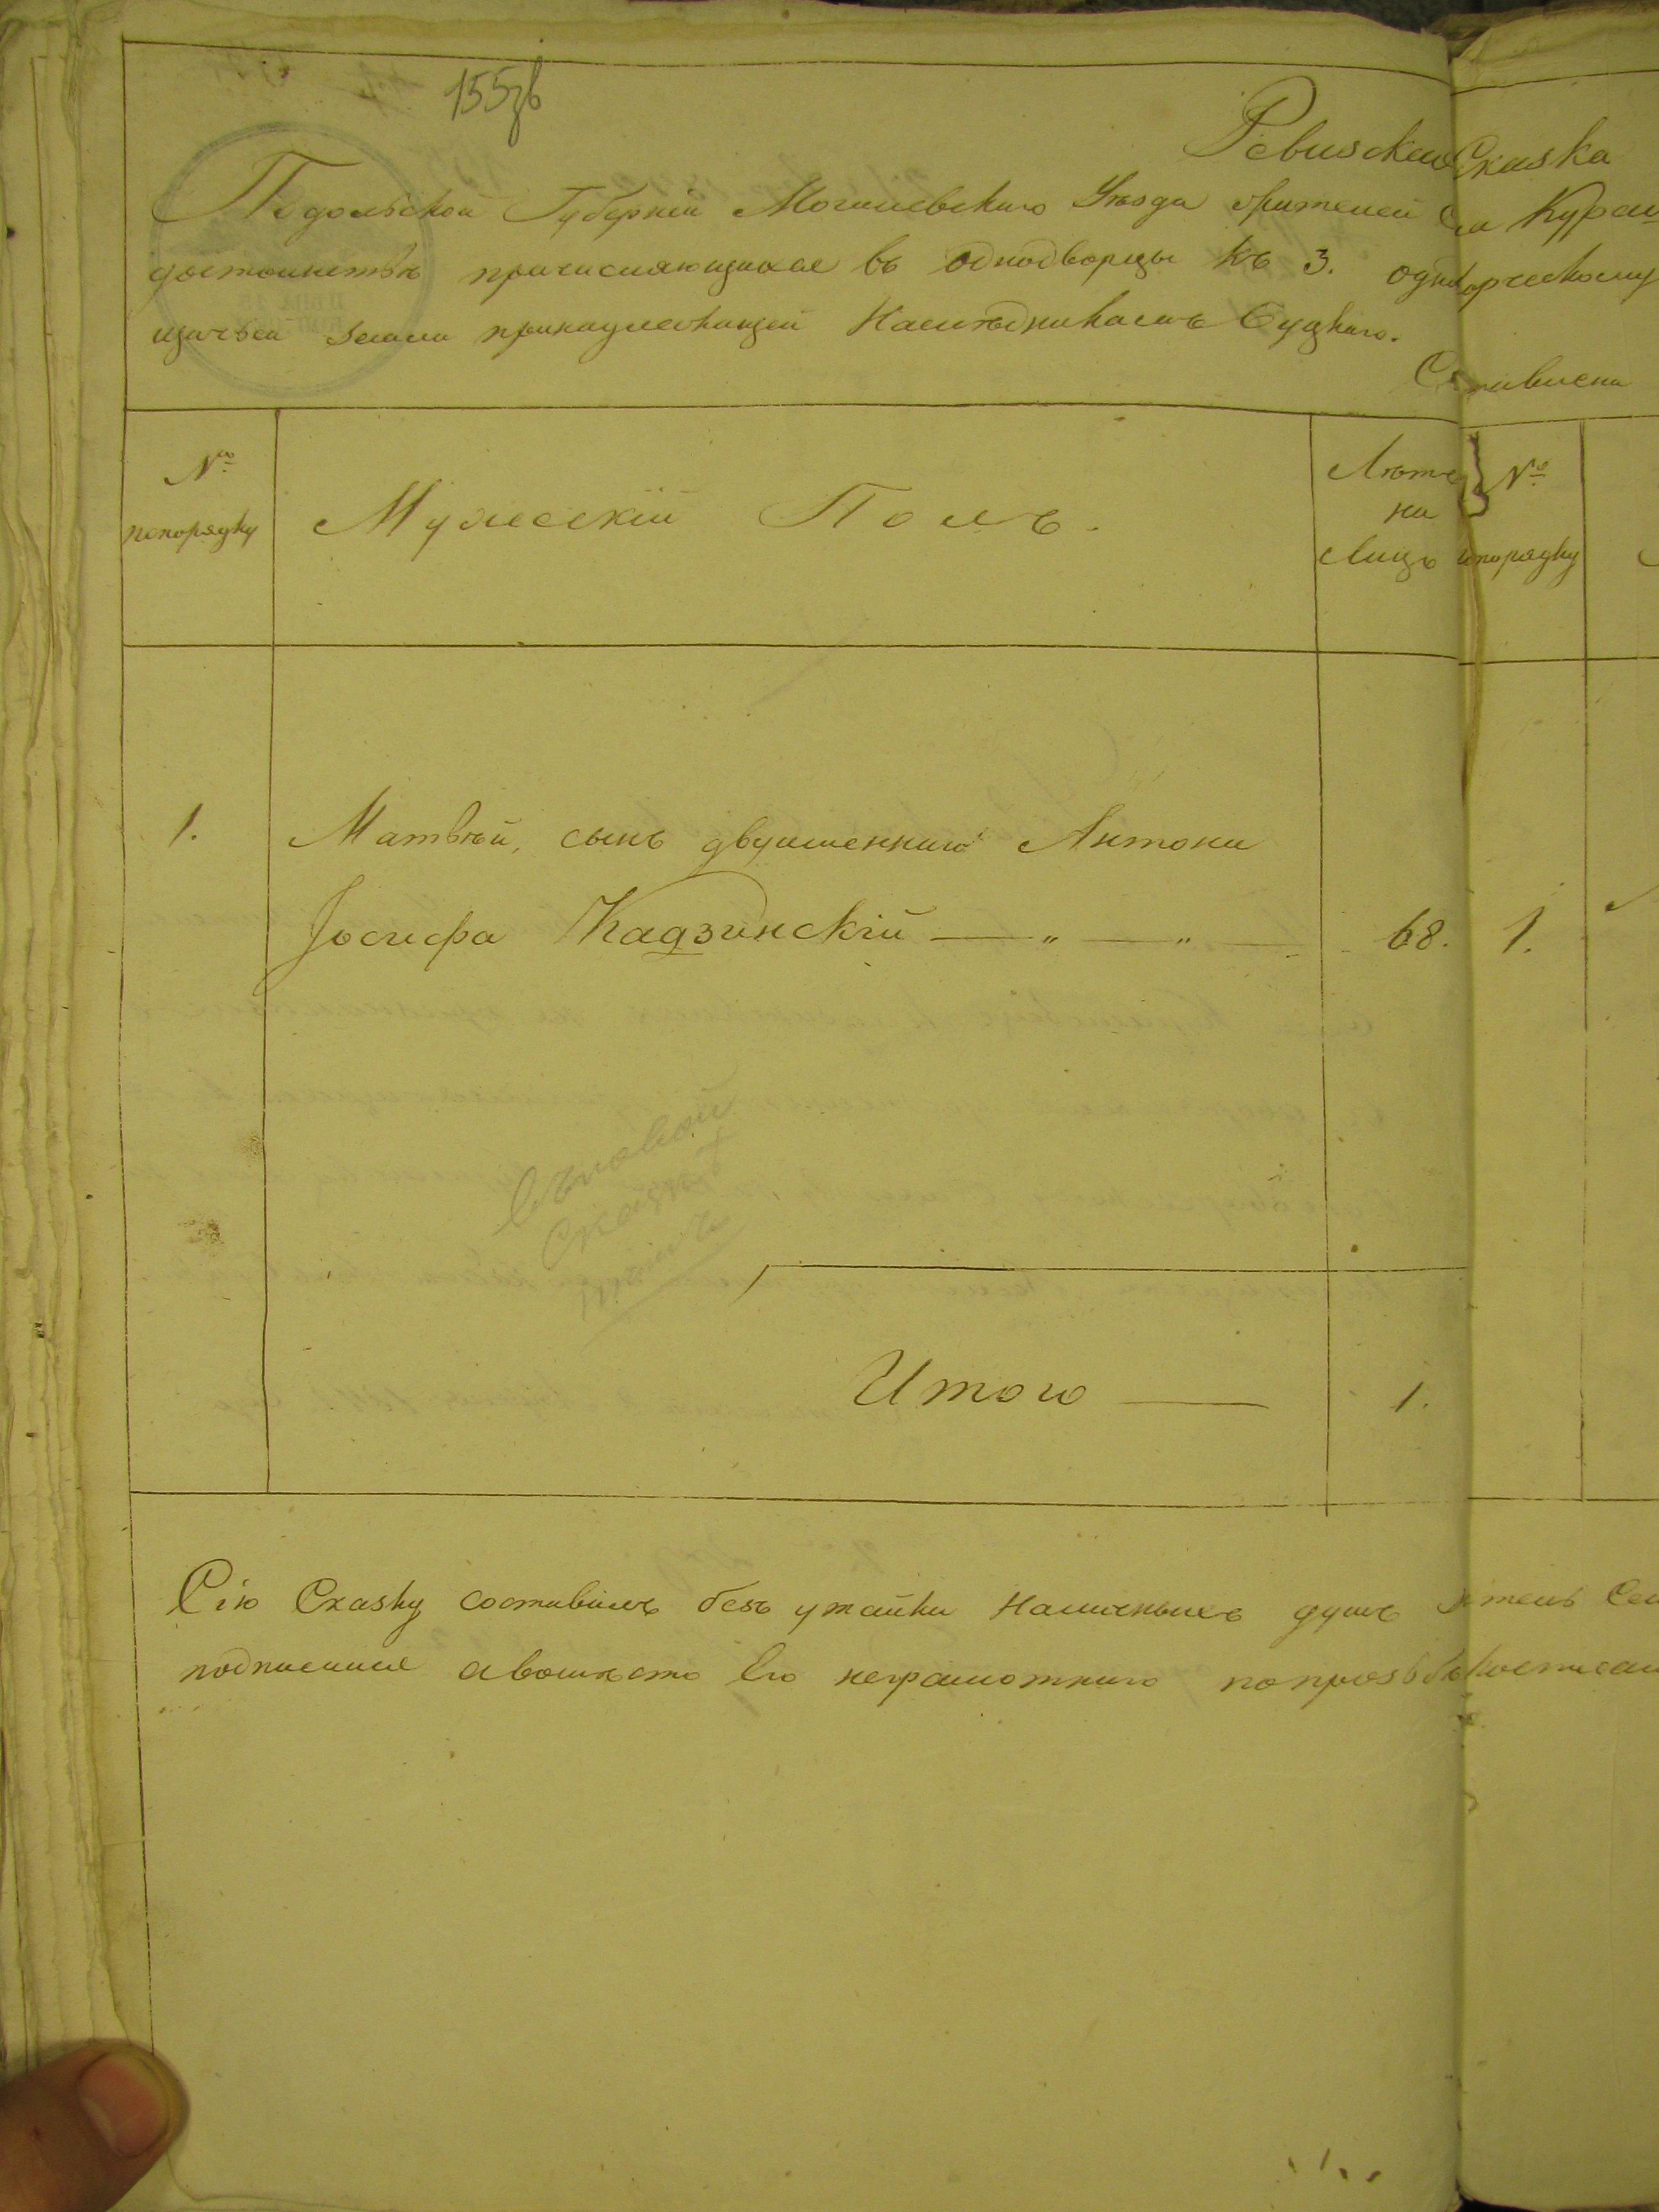 155зв
Ревизская Сказка
Подольской Губерніи Могилевскаго Уѣзда Жителей Села Кура
достоинствѣ причисляющихся въ однодворцы къ 3. однодворческому
щачьей земли принадлежащей Наслѣдникамъ Суцкаго.
Составлена
№ попорядку
Мужескій Полъ.
Лѣта на Лицо
№ попорядку
1. Матвѣй, сынъ двуименнаго Антона
Іосифа Кадзинскій — „ — „ — 68. 1.
Итого — 1.
Сію Сказку составилъ безъ утайки Наличныхъ душъ житель Сел
подписался авомѣсто Его неграмотнаго